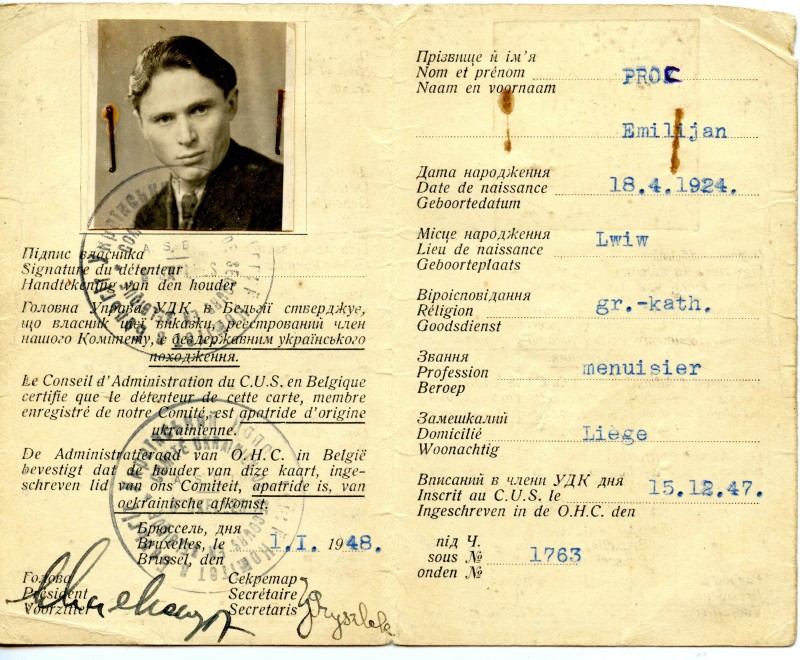 Підпис власника
Signature du détenteur
Handtekening van den houder
Головна Управа УДК в Бельгії стверджує,
що власник цієї виказки, реєстрований член
нашого Комітету, є бездержавним українського
походження.
Le Conseil d'Administration du C.U.S. en Belgique
certifie que le détenteur de cette carte, membre
enregistré de notre Comité, est apatride d'origine
ukrainienne.
De Administratieraad van O.H.C. in België
bevestigt dat de houder van dize kaart, inge-
schreven lid van ons Comiteit, apatride is, van
oekrainische afkomst.
Брюссель, дня
Bruxelles, le 1.I. 1948.
Brussel, den
Голова Секретар
Président Secrétaire
Voorzitter Secretaris
Прізвище й ім'я
Nom et prénom PROC
Naam en voornaam
Emilijan
Дата народження
Date de naissance 18.4.1924.
Geboortedatum
Місце народження
Lieu de naissance Lwiw
Geboorteplaats
Віроісповідання
Réligion gr.-kath.
Goodsdienst
Звання
Profession menuisier
Beroep
Замешкалий
Domicilié Liège
Woonachtig
Вписаний в члени УДК дня
Inscrit au C.U.S. le 15.12.47.
Ingeschreven in de O.H.C. den
під Ч.
sous № 1763
onden №